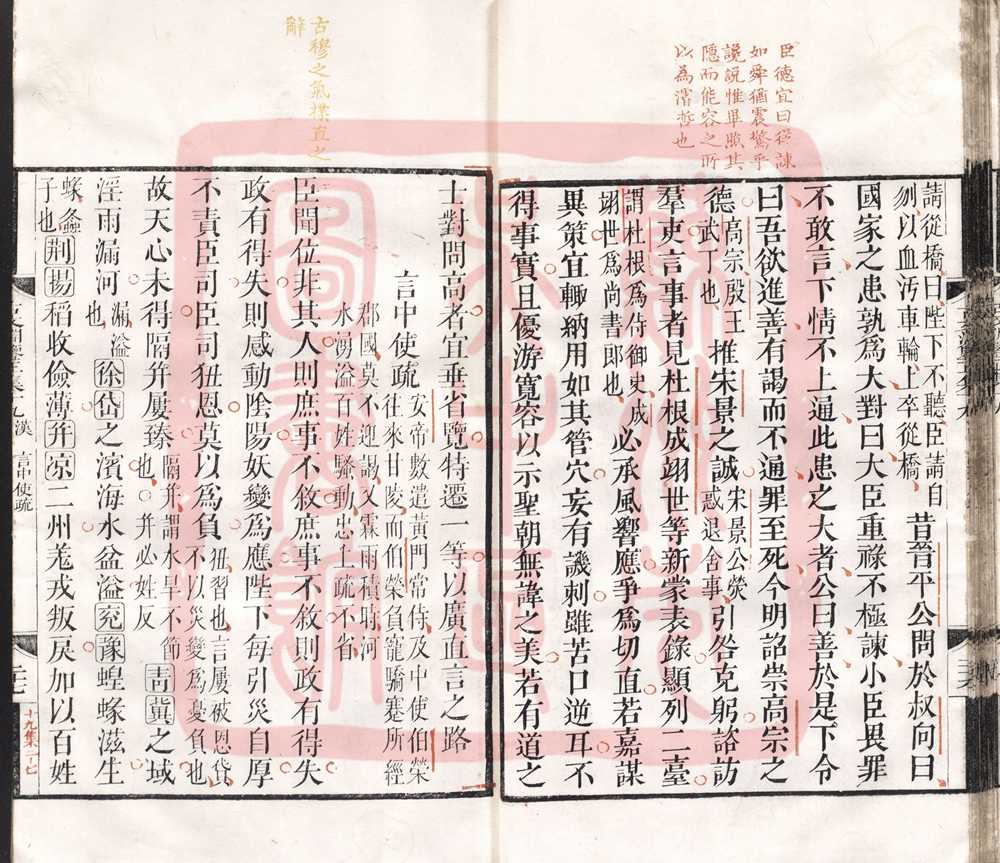 臣德宜曰從諫
如舜猶震驚乎
讒説惟畢照其
隱而能容之所
以為濬哲也
請從橋曰陛下不聽臣請自
刎以血汚車輪上卒從橋
昔晉平公問於叔向曰
國家之患孰為大對曰大臣重祿不極諫小臣畏罪
不敢言下情不上通此患之大者公曰善於是下令
曰吾欲進善有謁而不通罪至死今明詔崇高宗之
德
高宗殷王
武丁也
推宋景之誠
宋景公熒
惑退舍事
引咎克躬諮訪
羣吏言事者見杜根成翊世等新蒙表錄顯列二臺
謂杜根為侍御史成
翊世為尚書郎也
必承風響應爭為切直若嘉謀
異策宜輒納用如其管穴妄有譏刺雖苦口逆耳不
得事實且優游寬容以示聖朝無諱之美若有道之
古穆之氣樸直之
辭
士對問高者宜垂省覽特遷一等以廣直言之路
言中使疏
安帝數遣黃門常侍及中使伯榮
往來甘陵而伯榮負寵驕蹇所經
郡國莫不迎謁又霖雨積時河
水湧溢百姓騷動忠上疏不省
臣聞位非其人則庶事不敘庶事不敘則政有得失
政有得失則感動陰陽妖變為應陛下每引災自厚
不責臣司臣司狃恩莫以為負
狃習也言屢被恩貸
不以災變為憂負也
故天心未得隔幷屢臻
隔幷謂水旱不節
也幷必姓反
靑冀之域
淫雨漏河
漏溢
也
徐岱之濱海水盆溢兗豫蝗蝝滋生
蝝螽
子也
荆揚稻收儉薄幷凉二州羌戎叛戾加以百姓
漢 言中使疏
十九集 二十七